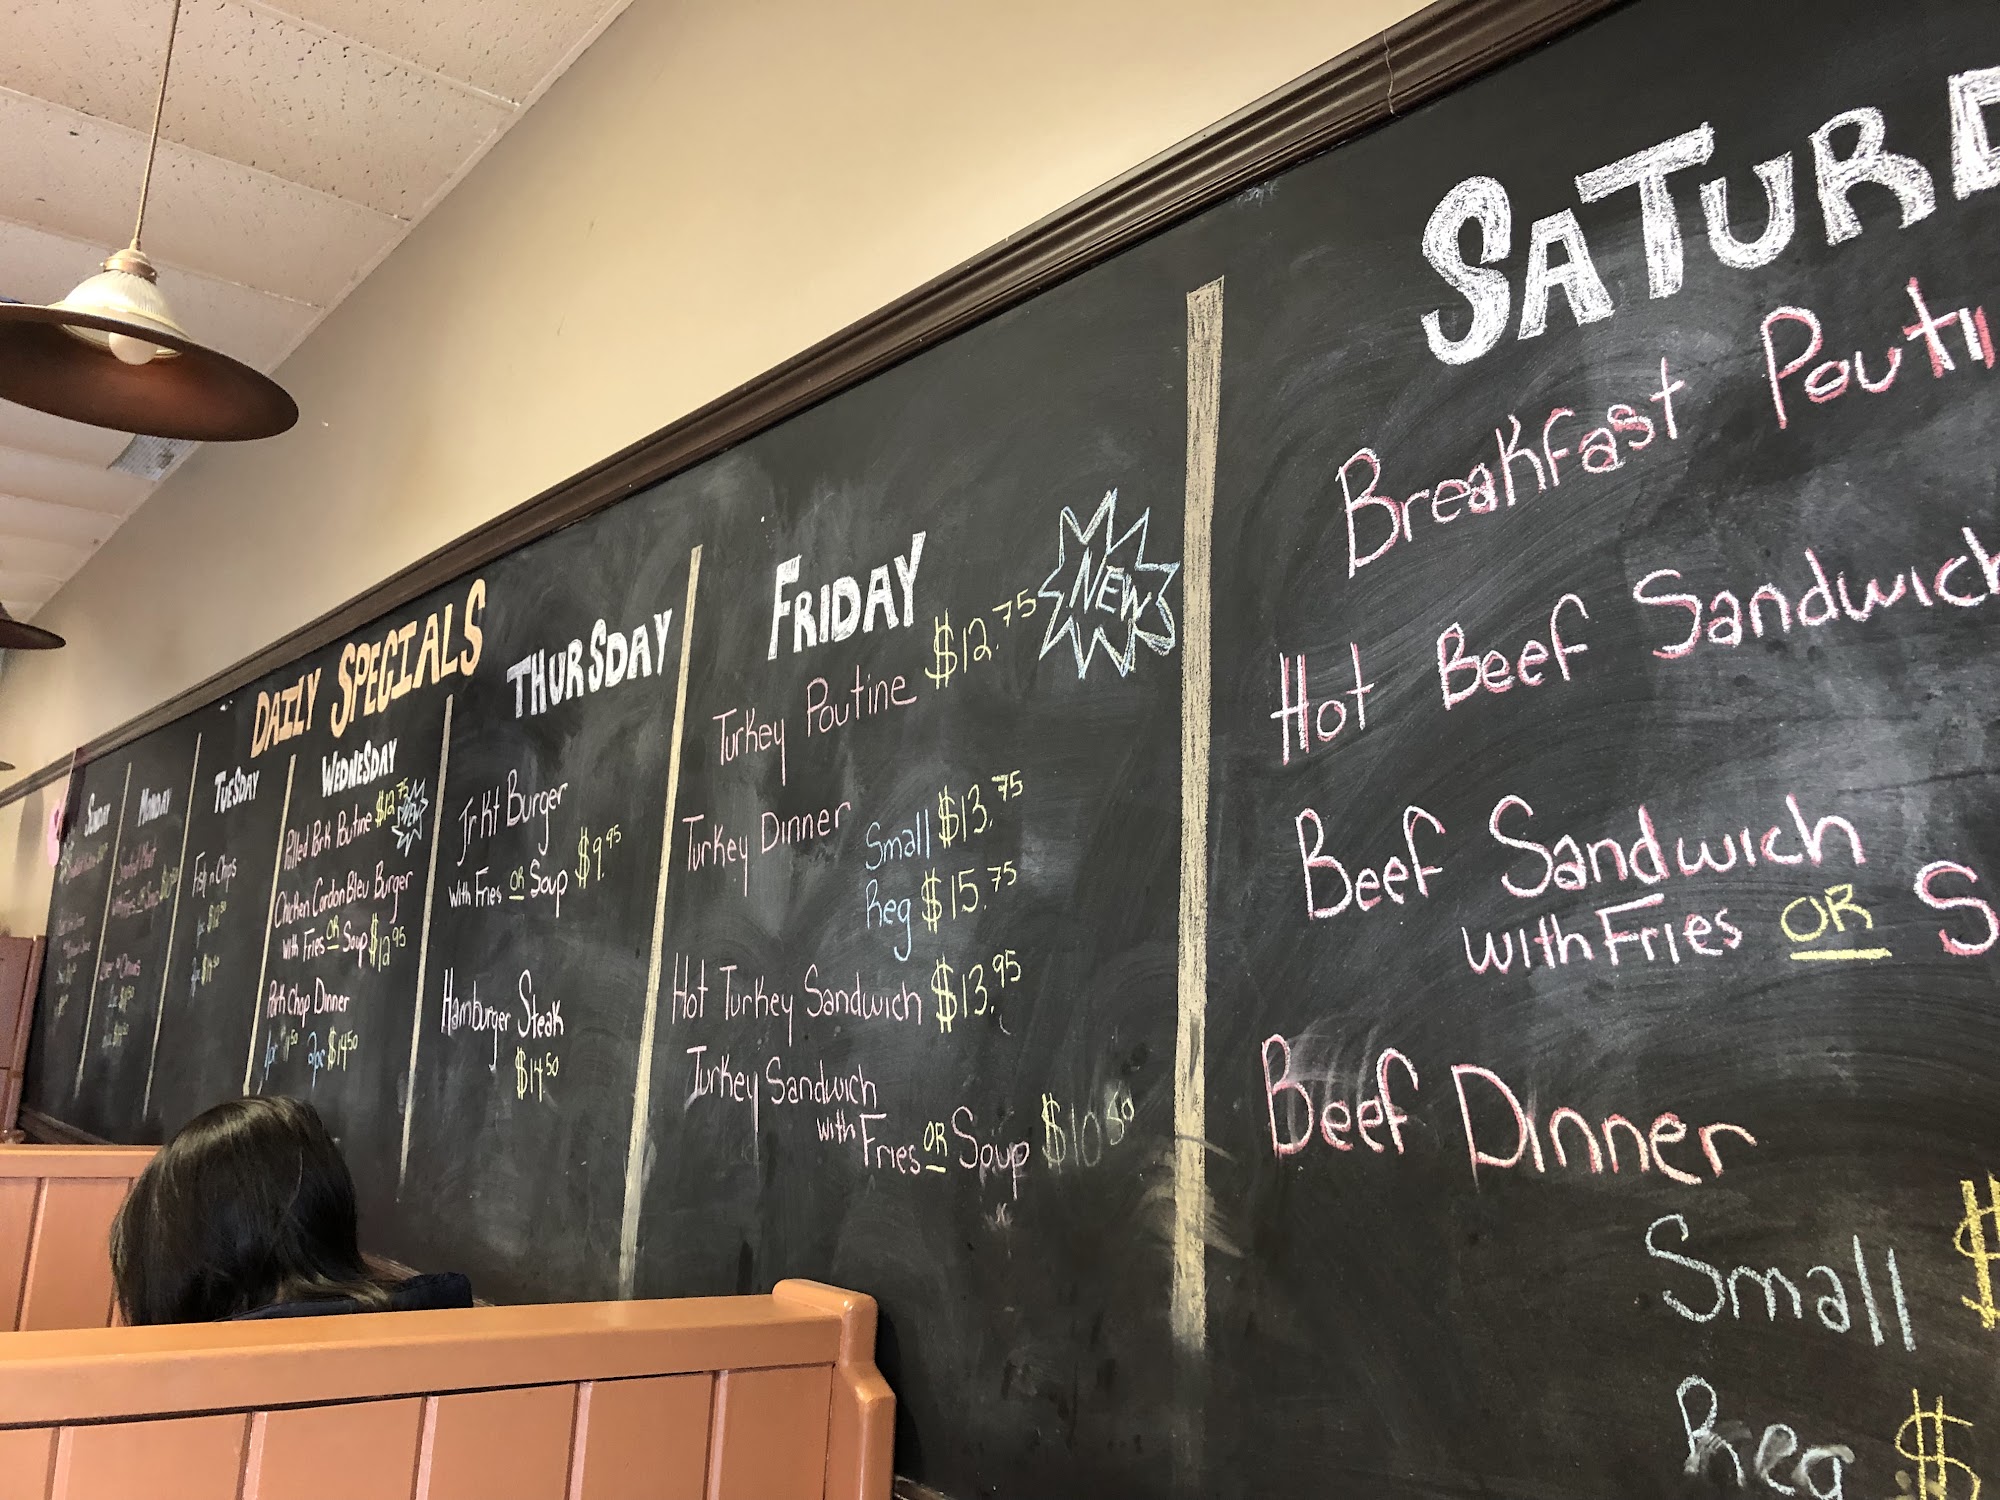 DAILY SPECIALS
SUNDAY
MONDAY
TUESDAY
Fish n Chips
WEDNESDAY
Pulled Pork Poutine $12.75
NEW
Chicken Cordon Bleu Burger
with Fries OR Soup $12.95
Pork Chop Dinner
2pc $14.50
THURSDAY
Jr Kt Burger
with Fries OR Soup $9.95
Hamburger Steak
$14.50
FRIDAY
NEW
Turkey Poutine $12.75
Turkey Dinner Small $13.75
Reg $15.75
Hot Turkey Sandwich $13.95
Turkey Sandwich
with Fries OR Soup $10.50
SATURD
Breakfast Pouti
Hot Beef Sandwich
Beef Sandwich
with Fries OR S
Beef Dinner
Small $
Reg $